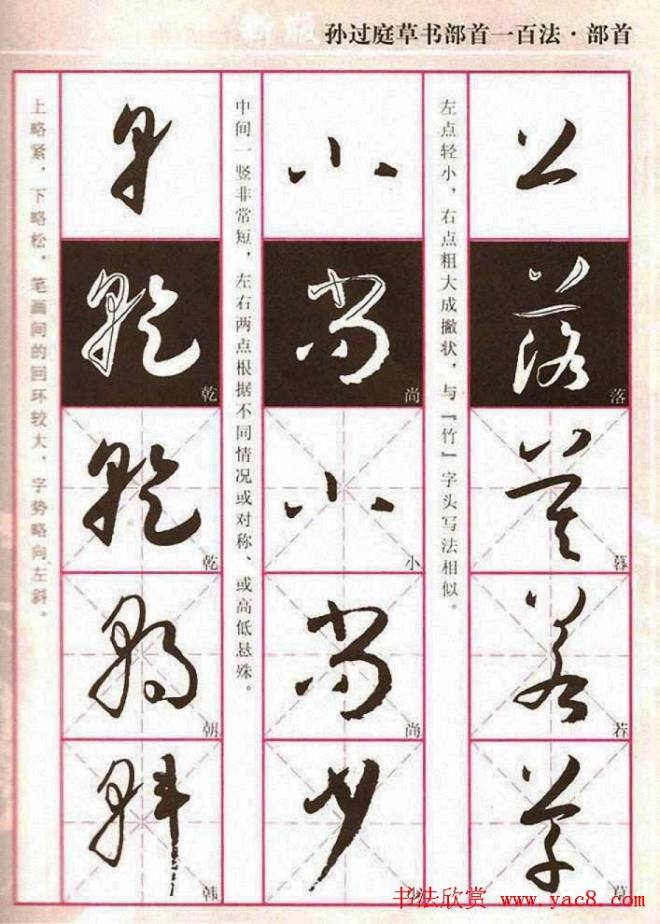 新版
孙过庭草书部首一百法·部首
左点轻小，右点粗大成撇状，与『竹』字头写法相似。
落
暮
若
草
中间一竖非常短，左右两点根据不同情况或对称、或高低悬殊。
小
尚
尚
小
尚
少
上略紧，下略松，笔画间的回环较大，字势略向左斜。
乾
乾
朝
韩
书法欣赏 www.yac8.com